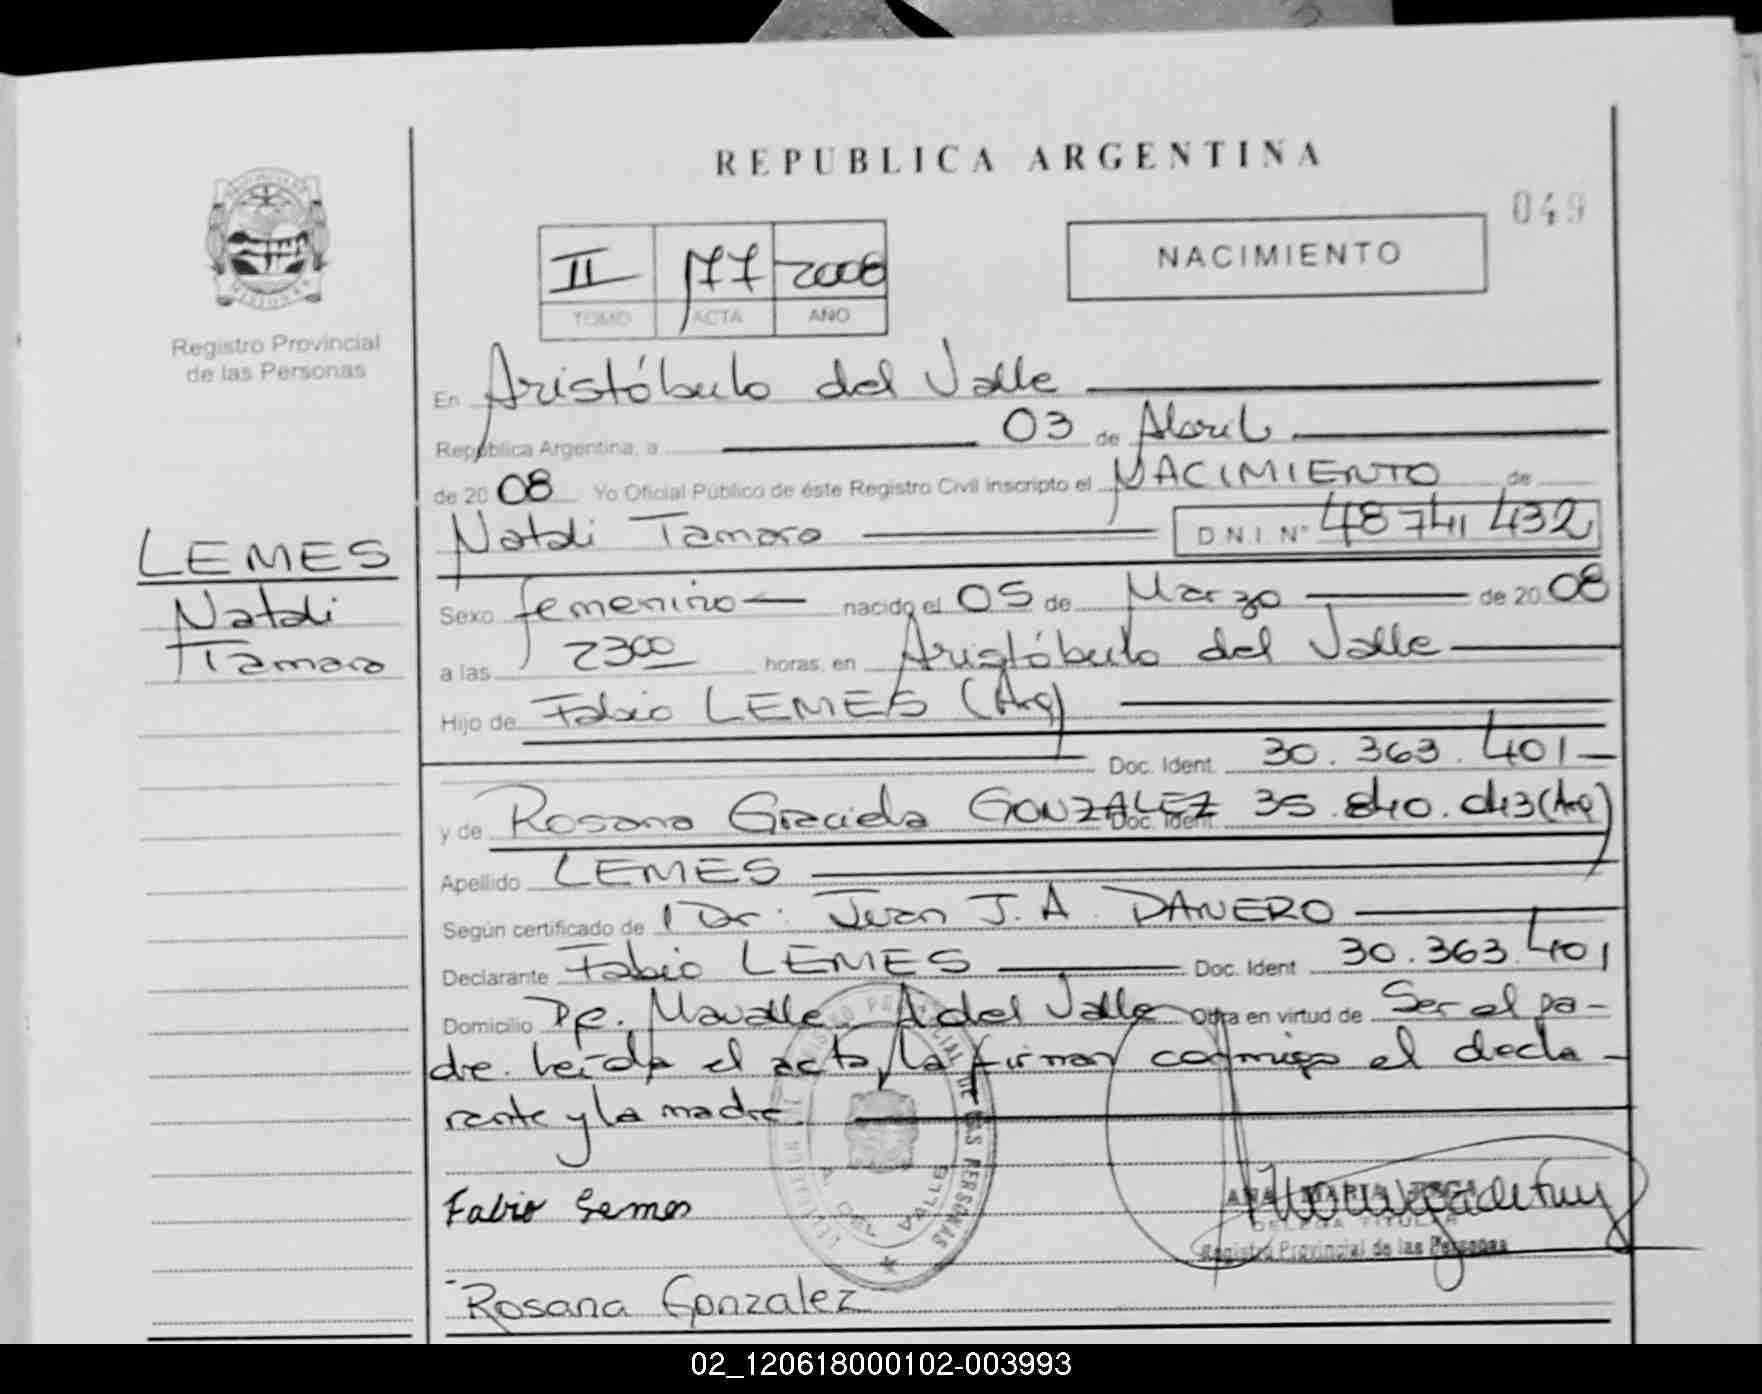 REPUBLICA ARGENTINA
049
II 177 2008
TOMO ACTA AÑO
NACIMIENTO
MISIONES
Registro Provincial
de las Personas
En Aristóbulo del Valle
República Argentina, a 03 de Abril
de 2008 Yo Oficial Público de éste Registro Civil inscripto el NACIMIENTO de
Natali Tamara D.N.I. Nº 48 741 432
LEMES
Natali
Tamara
Sexo femenino nacido el 05 de Marzo de 2008
a las 2300 horas, en Aristóbulo del Valle
Hijo de Fabio LEMES (Arg)
Doc. Ident. 30.363.401
y de Rosana Graciela GONZALEZ Doc. Ident. 35.840.043 (Arg)
Apellido LEMES
Según certificado de Dr. Juan J. A. DANERO
Declarante Fabio LEMES Doc. Ident. 30.363.401
Domicilio A. del Valle Obra en virtud de Ser el pa-
dre. Leída el acta, la firman conmigo el decla-
rante y la madre.
A. DEL VALLE
Fabio Lemes
ANA MARIA
DELEGADA TITULAR
Registro Provincial de las Personas
Rosana Gonzalez
02_120618000102-003993